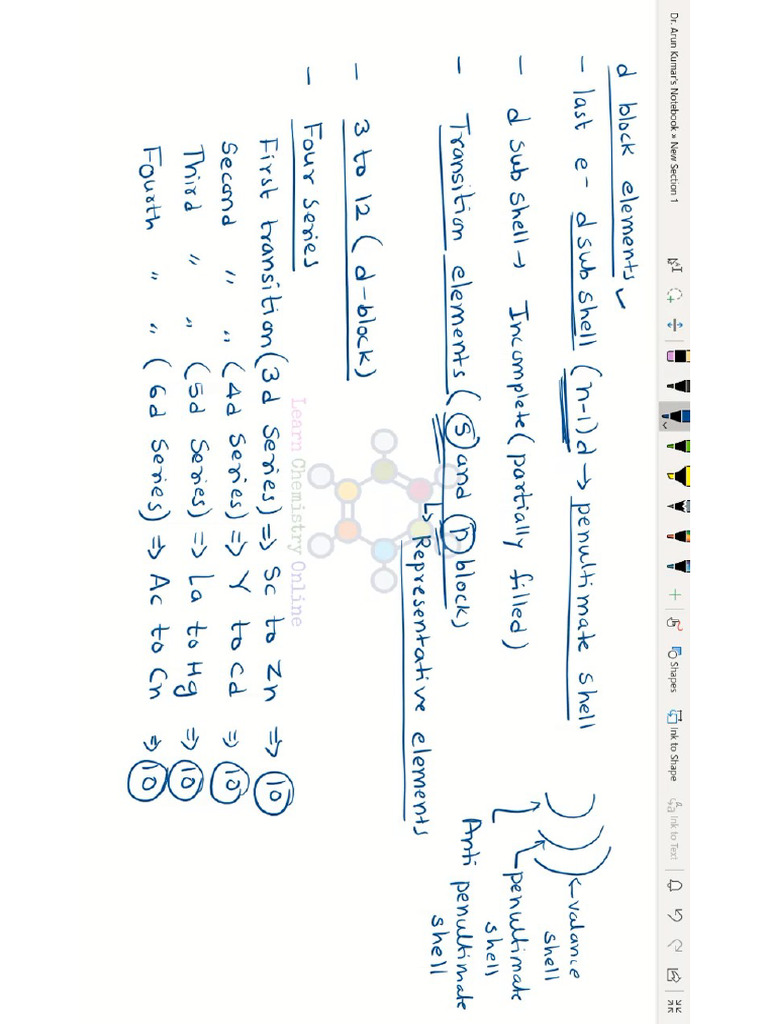 Dr. Arun Kumar's Notebook » New Section 1
Shapes
Ink to Shape
Ink to Text
d block elements
- last e- d sub shell (n-1)d → penultimate shell
- d sub shell → Incomplete (partially filled)
- Transition elements (s and p block)
↳ Representative elements
- 3 to 12 (d-block)
- Four series
First transition (3d series) ⇒ Sc to Zn ⇒ 10
Second " " (4d series) ⇒ Y to Cd ⇒ 10
Third " " (5d series) ⇒ La to Hg ⇒ 10
Fourth " " (6d series) ⇒ Ac to Cn ⇒ 10
← valance
shell
penultimate
shell
Anti penultimate
shell
Learn Chemistry Online